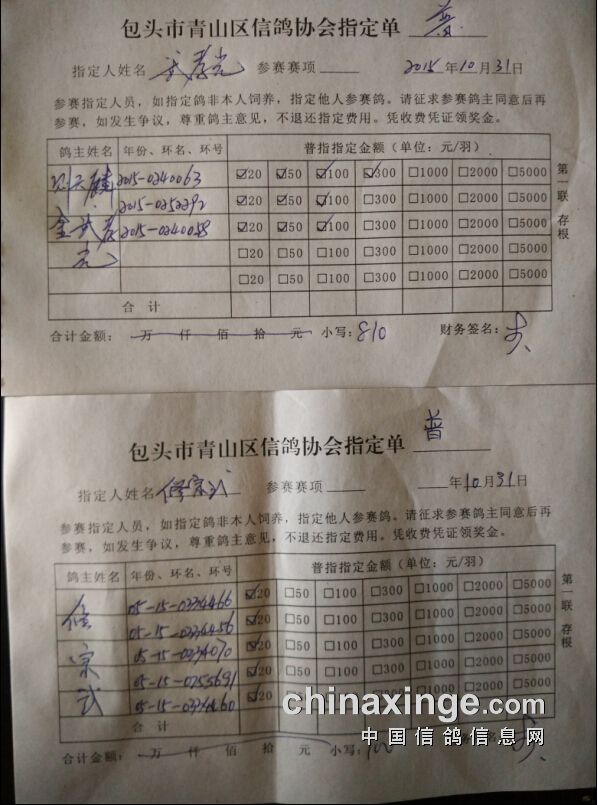 包头市青山区信鸽协会指定单 普
指定人姓名 武孝光 参赛赛项 2015年10月31日
参赛指定人员，如指定鸽非本人饲养，指定他人参赛鸽。请征求参赛鸽主同意后再
参赛，如发生争议，尊重鸽主意见，不退还指定费用。凭收费凭证领奖金。
鸽主姓名 年份、环名、环号 普指指定金额（单位：元/羽）
2015-0240063 ☑20 ☑50 ☑100 ☑300 □1000 □2000 □5000
2015-0252292 ☑20 ☑50 ☑100 □300 □1000 □2000 □5000
2015-0240058 ☑20 ☑50 ☑100 □300 □1000 □2000 □5000
□20 □50 □100 □300 □1000 □2000 □5000
□20 □50 □100 □300 □1000 □2000 □5000
合计
第一联 存根
合计金额： 万 仟 佰 拾 元 小写：810 财务签名：
包头市青山区信鸽协会指定单 普
指定人姓名 修宗武 参赛赛项 年10月31日
参赛指定人员，如指定鸽非本人饲养，指定他人参赛鸽。请征求参赛鸽主同意后再
参赛，如发生争议，尊重鸽主意见，不退还指定费用。凭收费凭证领奖金。
鸽主姓名 年份、环名、环号 普指指定金额（单位：元/羽）
修 05-15-0334466 ☑20 □50 □100 □300 □1000 □2000 □5000
05-15-0334456 ☑20 □50 □100 □300 □1000 □2000 □5000
宗 05-15-0234070 ☑20 □50 □100 □300 □1000 □2000 □5000
05-15-0255691 ☑20 □50 □100 □300 □1000 □2000 □5000
武 05-15-0334460 ☑20
合计
第一联 存根
合计金额： 万 仟 佰 拾 元 小写：100
chinaxinge.com
中国信鸽信息网